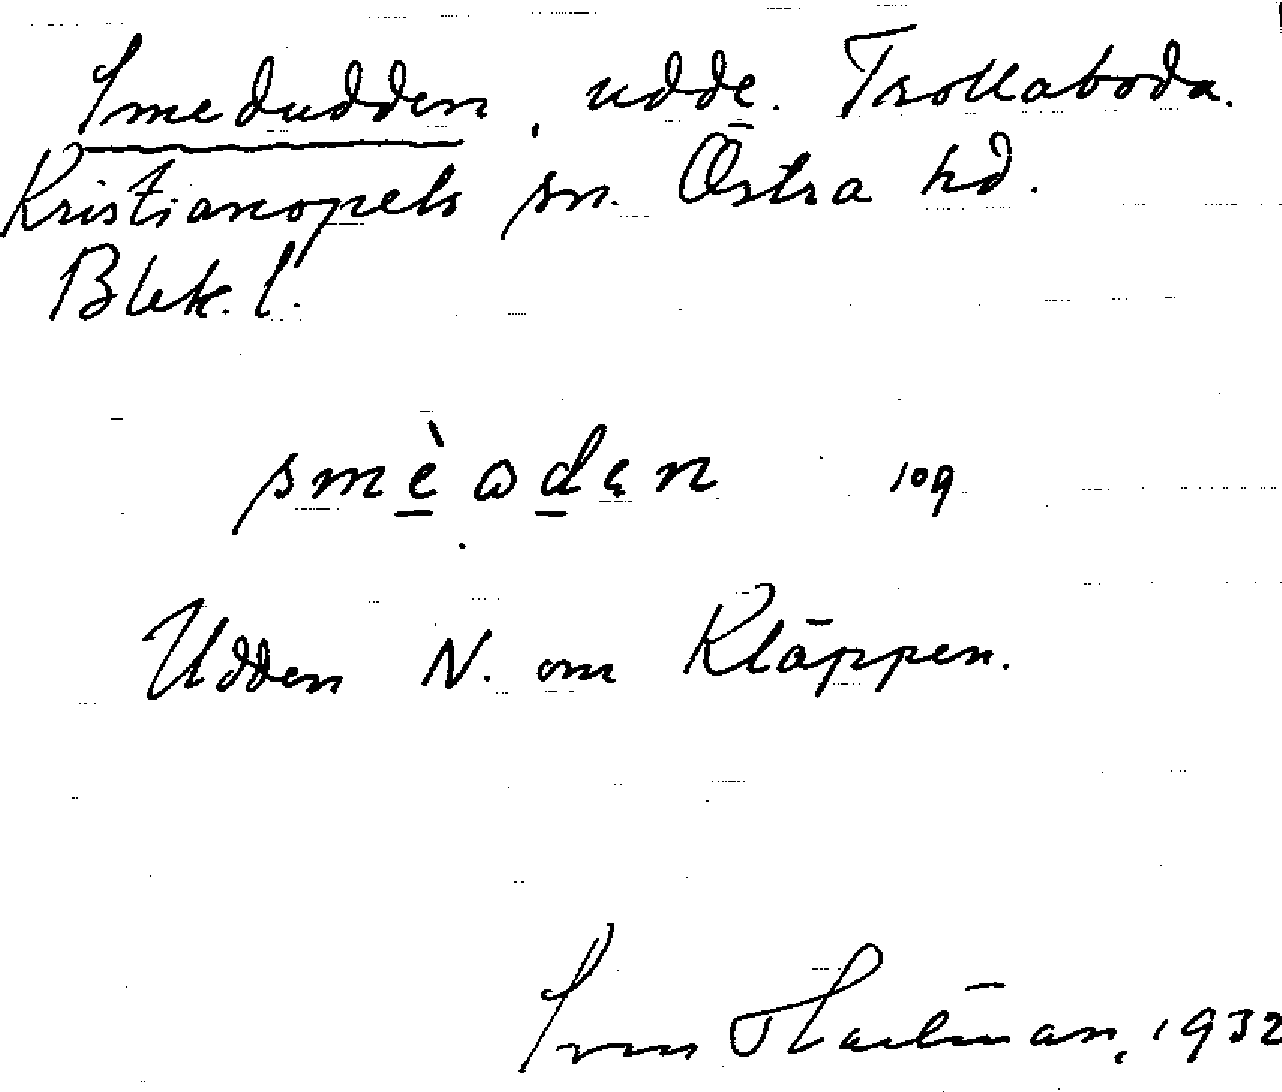 Smedudden, udde. Trollaboda.
Kristianopels sn. Östra hd.
Blek. l.
smèɷdən 109
Udden N. om Kläppen.
Sven Hallman, 1932